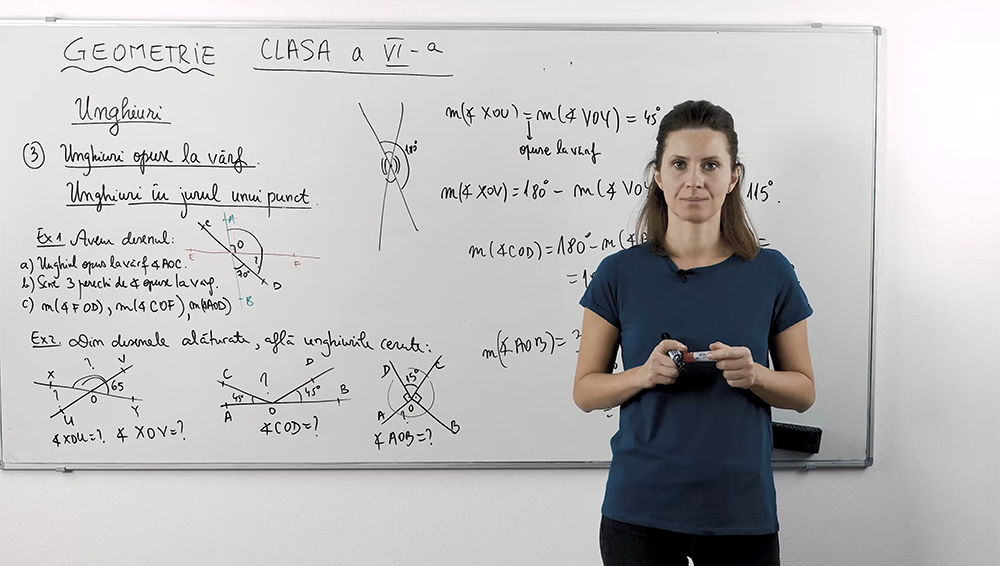 GEOMETRIE CLASA a VI-a
Unghiuri
3 Unghiuri opuse la vârf.
Unghiuri în jurul unui punct.
Ex1 Avem desenul:
a) Unghiul opus la vârf ∢AOC.
b) Scrie 3 perechi de ∢ opuse la vârf.
c) m(∢FOD), m(∢COF), m(∢AOD)
A
C
O
E
F
?
70°
D
B
Ex2. Din desenele alăturate, află unghiurile cerute:
?
X
V
65
?
O
Y
U
∢XOU=? ∢XOV=?
C
?
D
45°
45°
A
O
B
∢COD=?
D
C
15°
A
?
O
B
∢AOB=?
m(∢XOU)=m(∢VOY)=45°
opuse la vârf
m(∢XOV)=180°-m(∢VOY
115°.
m(∢COD)=180°-m(∢
=
=1
m(∢AOB)=3